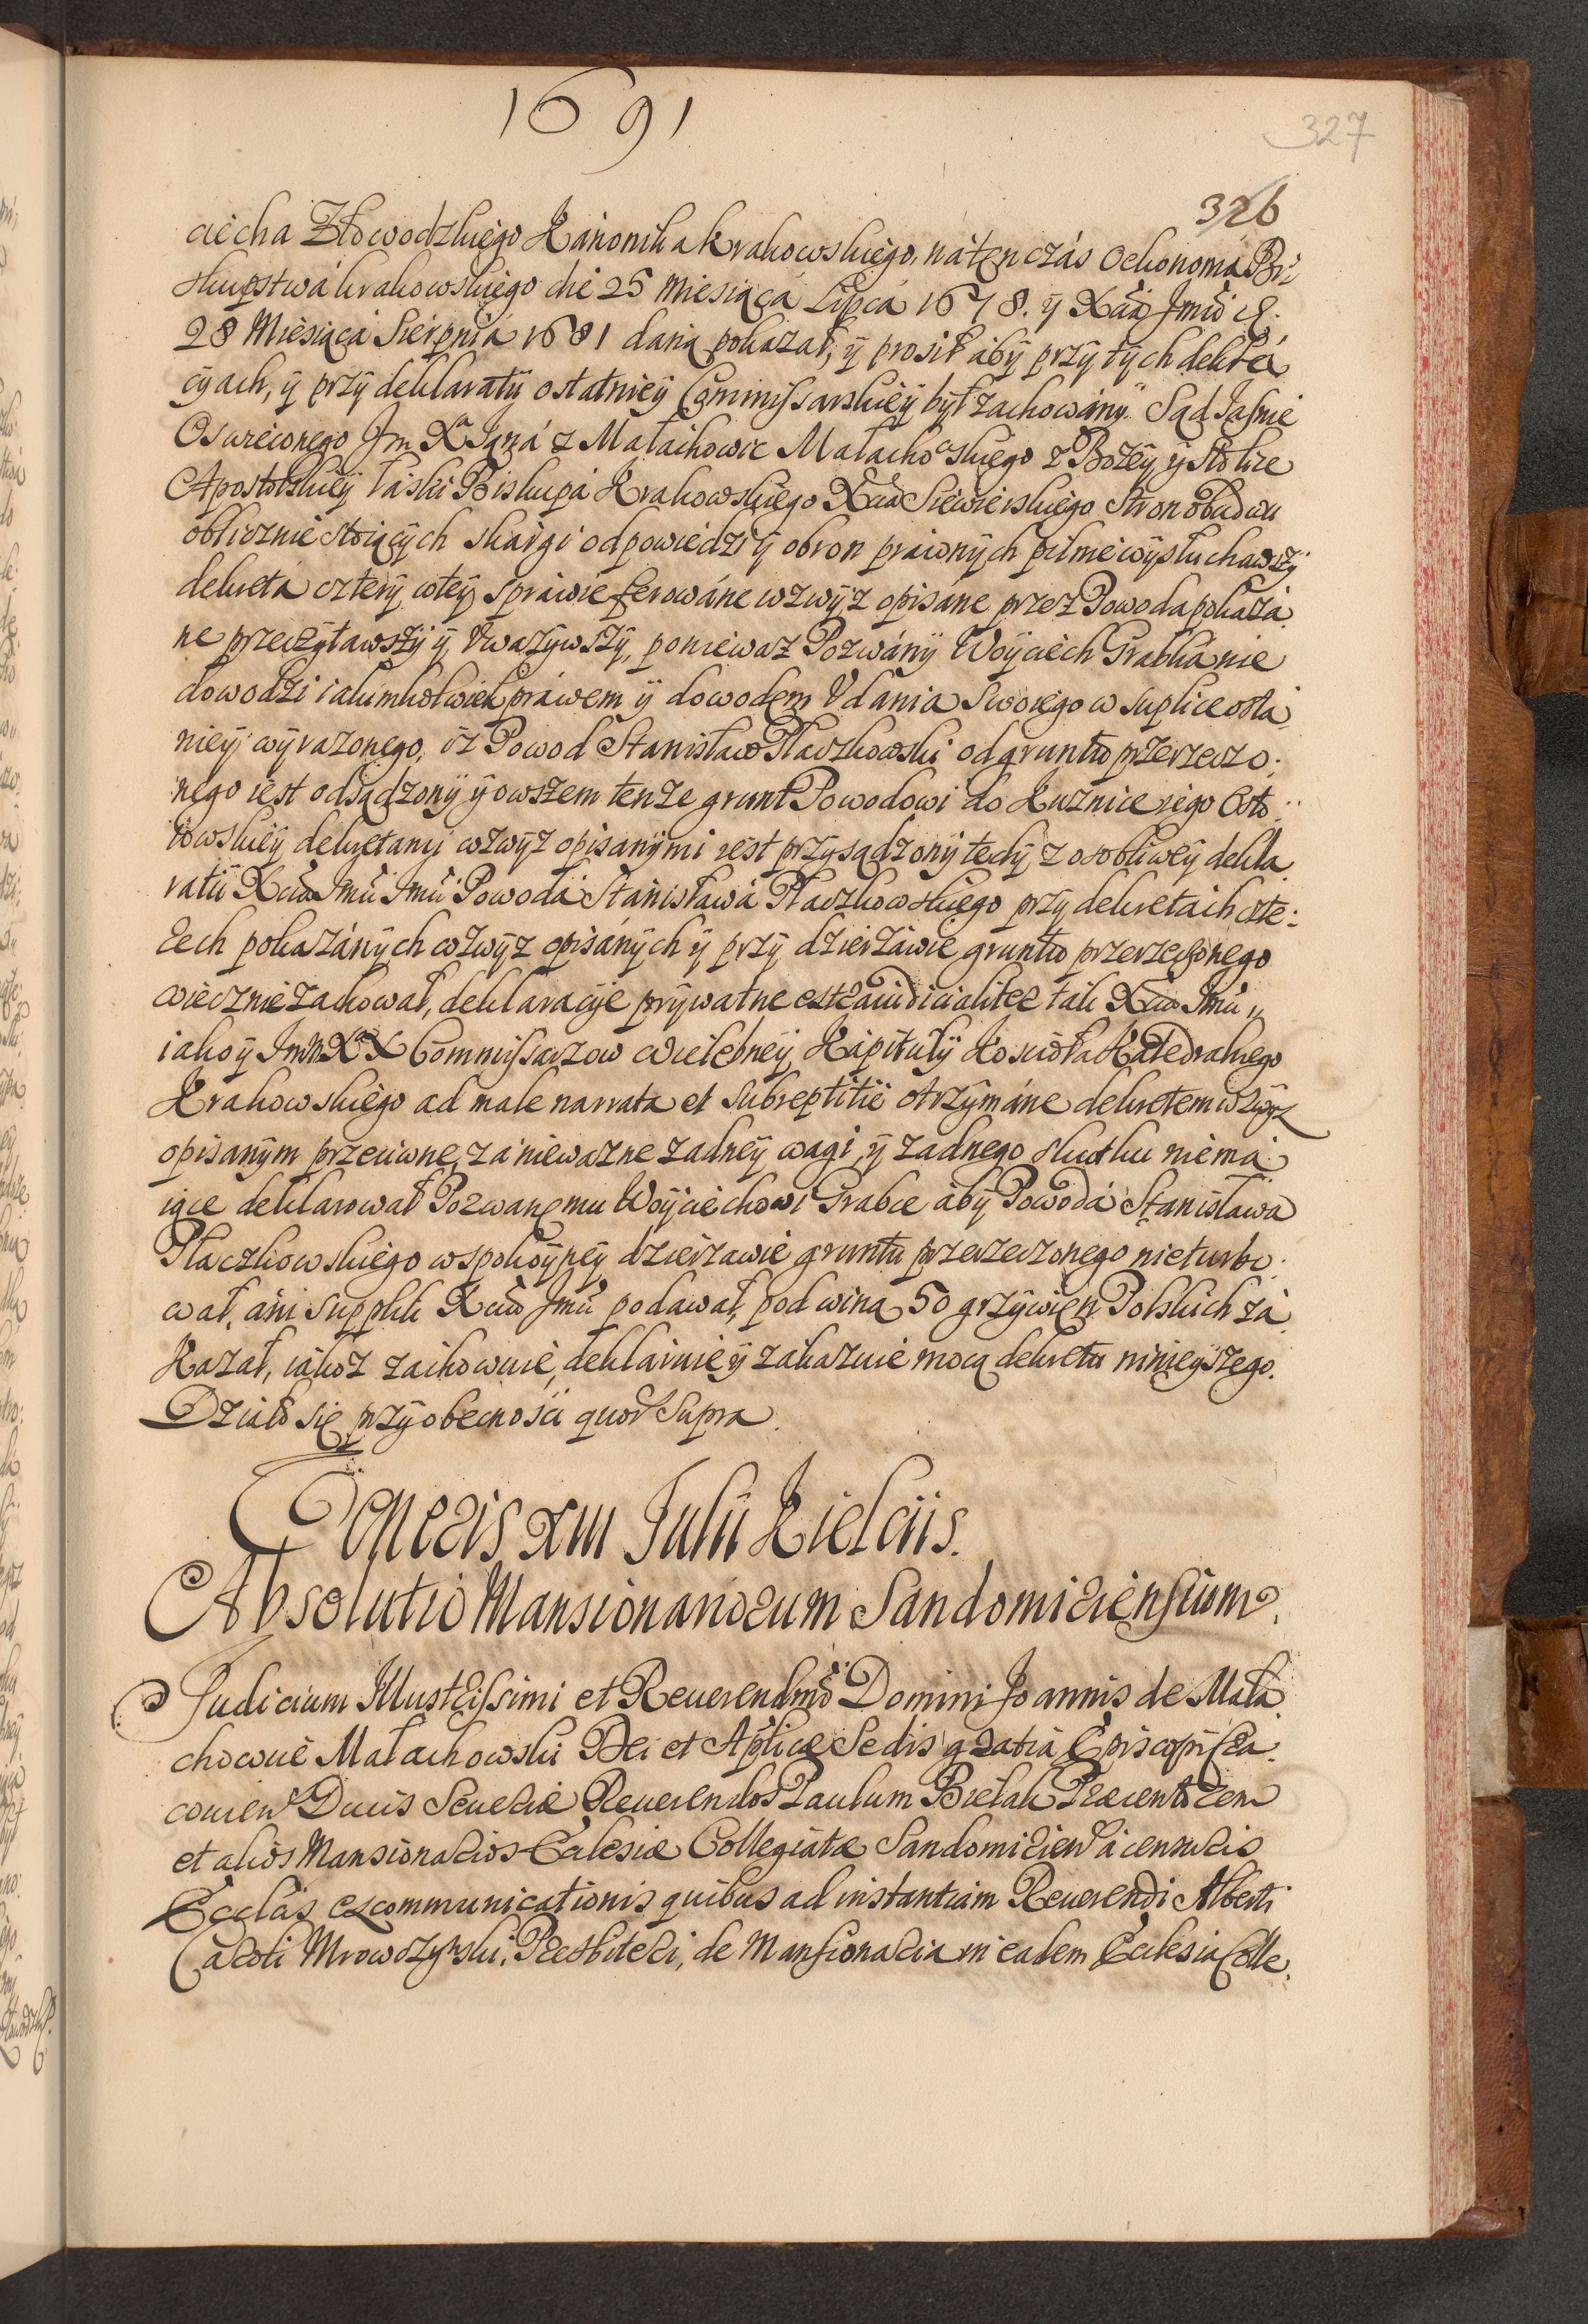 1691
327
326
ciecha Złowodzkiego Kanonika krakowskiego, nátenczás Oekonomá Bi:
skupstwá krakowskiego die 25 Miesiącá Lipcá 1678. ÿ Xcia Jmśći d.
28 Miesiącá Sierpniá 1681 daną pokazał, ÿ prosił abÿ przÿ tÿch dekla
cÿach, ÿ przÿ deklaratÿ ostatnieÿ Commissarskieÿ bÿł zachowánÿ. Sąd Jasnie
Oswieconego Jm Xa Janá z Małachowic Małachowskiego z Bożeÿ ÿ Stolice
Apostolskieÿ łáski Biskupá Krakowskiego Xcia Siewierskiego Stron obudwu
oblicznie stoiącÿch skárgi odpowiedzi ÿ obron práwnÿch pilnie wÿsłuchawszÿ
dekretá czterÿ wteÿ spráwie ferowáne wzwÿz opisane przez Powoda pokazá
ne przeczÿtawszÿ ÿ Uwazÿwszÿ, poniewaz Pozwánÿ Woÿciech Grabka nie
dowodzi iakimkolwiek práwem ÿ dowodem Udania swoiego w suplice ostá
nieÿ wÿrazonego, iz Powod Stanisław Płaczkowski od gruntu przerzeczo:
nego iest odsądzonÿ ÿ owszem tenze grunt Powodowi do Kuznice iego
towskieÿ dekretamÿ wzwÿz opisanÿmi iest przÿsądzonÿ tedÿ z osobliweÿ dekla
ratiÿ Xcia Jmći Jmći Powodá Stánisławá Płaczkowskiego przÿ dekretách czte:
rech pokazánÿch wzwÿz opisánÿch ÿ przÿ dzierzáwie gruntu przerzeczonego
wiecznie záchował, deklaracÿie prÿwatne extraiudicialiter tak Xcia Jmći
iako ÿ Jmm XX Commissarzow wielebneÿ Kápitułÿ Kościoła Katedralnego
Krakowskiego ad male narrata et subreptitie otrzÿmáne dekretem wzwÿz
opisanÿm przeciwne, zá niewazne zadneÿ wagi, ÿ zadnego skutku nie má
iące deklarował Pozwanemu Woÿciechowi Grabce abÿ Powodá Stanisławá
Płaczkowskiego w spokoÿneÿ dzierzawie gruntu przerzeczonego nieturbo:
wał, áni supplik Xciu Jmći podawał, pod winą 50 grzÿwien Polskich zá
kazał, iakoz záchowuie, dekláruie ÿ zakazuie mocą dekretu ninieÿszego.
Działo się przÿ obecnosći quor Supra.
Veneris XIII Julii Kielciis.
Absolutio Mansionariorum Sandomiriensium.
Judicium Illustrissimi et Reuerendmi Domini Joannis de Mała
chowice Małachowski Dei et Aplicæ Sedis gratia Episcopi Cra
couien Ducis Seueriæ Reuerendos Paulum Bielak Præcentorem
et alios Mansionarios Ecclesiæ Collegiatæ Sandomirien à censuris
Ecclãs excommunicationis quibus ad instantiam Reuerendi Alberti
Caroli Mrowczÿnski, Presbiteri, de Mansionaria in eadem Ecclesia Colle